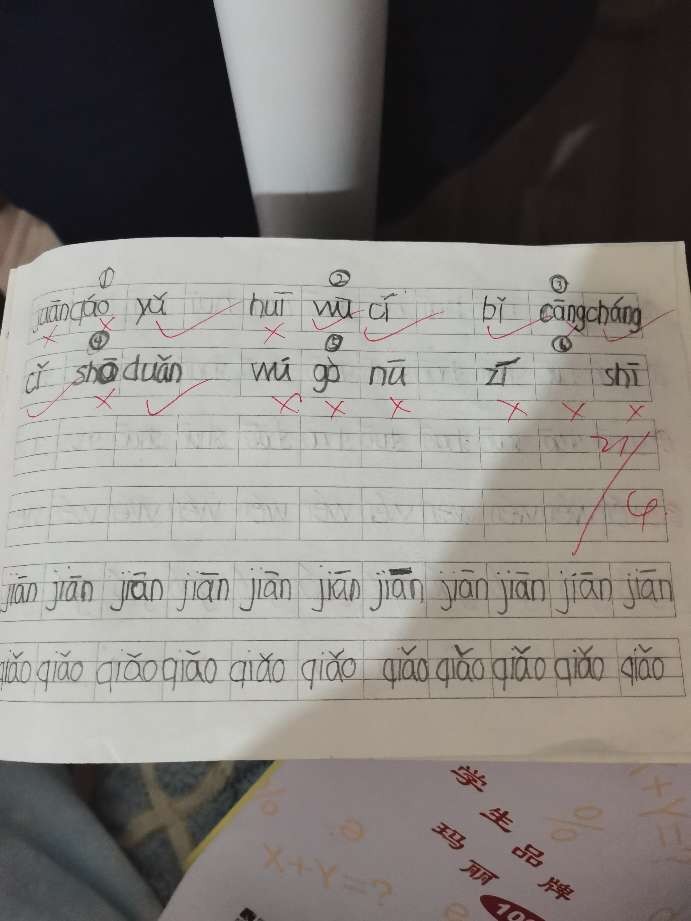 ① ② ③
juānqáo yǔ huī wū cǐ bǐ cāngcháng
④ ⑤ ⑥
cǐ shāo duǎn wú gò nū zī shī
21/4
jiān jiān jiān jiān jiān jiān jiān jiān jiān jiān jiān
qiǎo qiǎo qiǎo qiǎo qiǎo qiǎo qiǎo qiǎo qiǎo qiǎo qiǎo
学生品牌
玛丽
100
X+Y=?
%